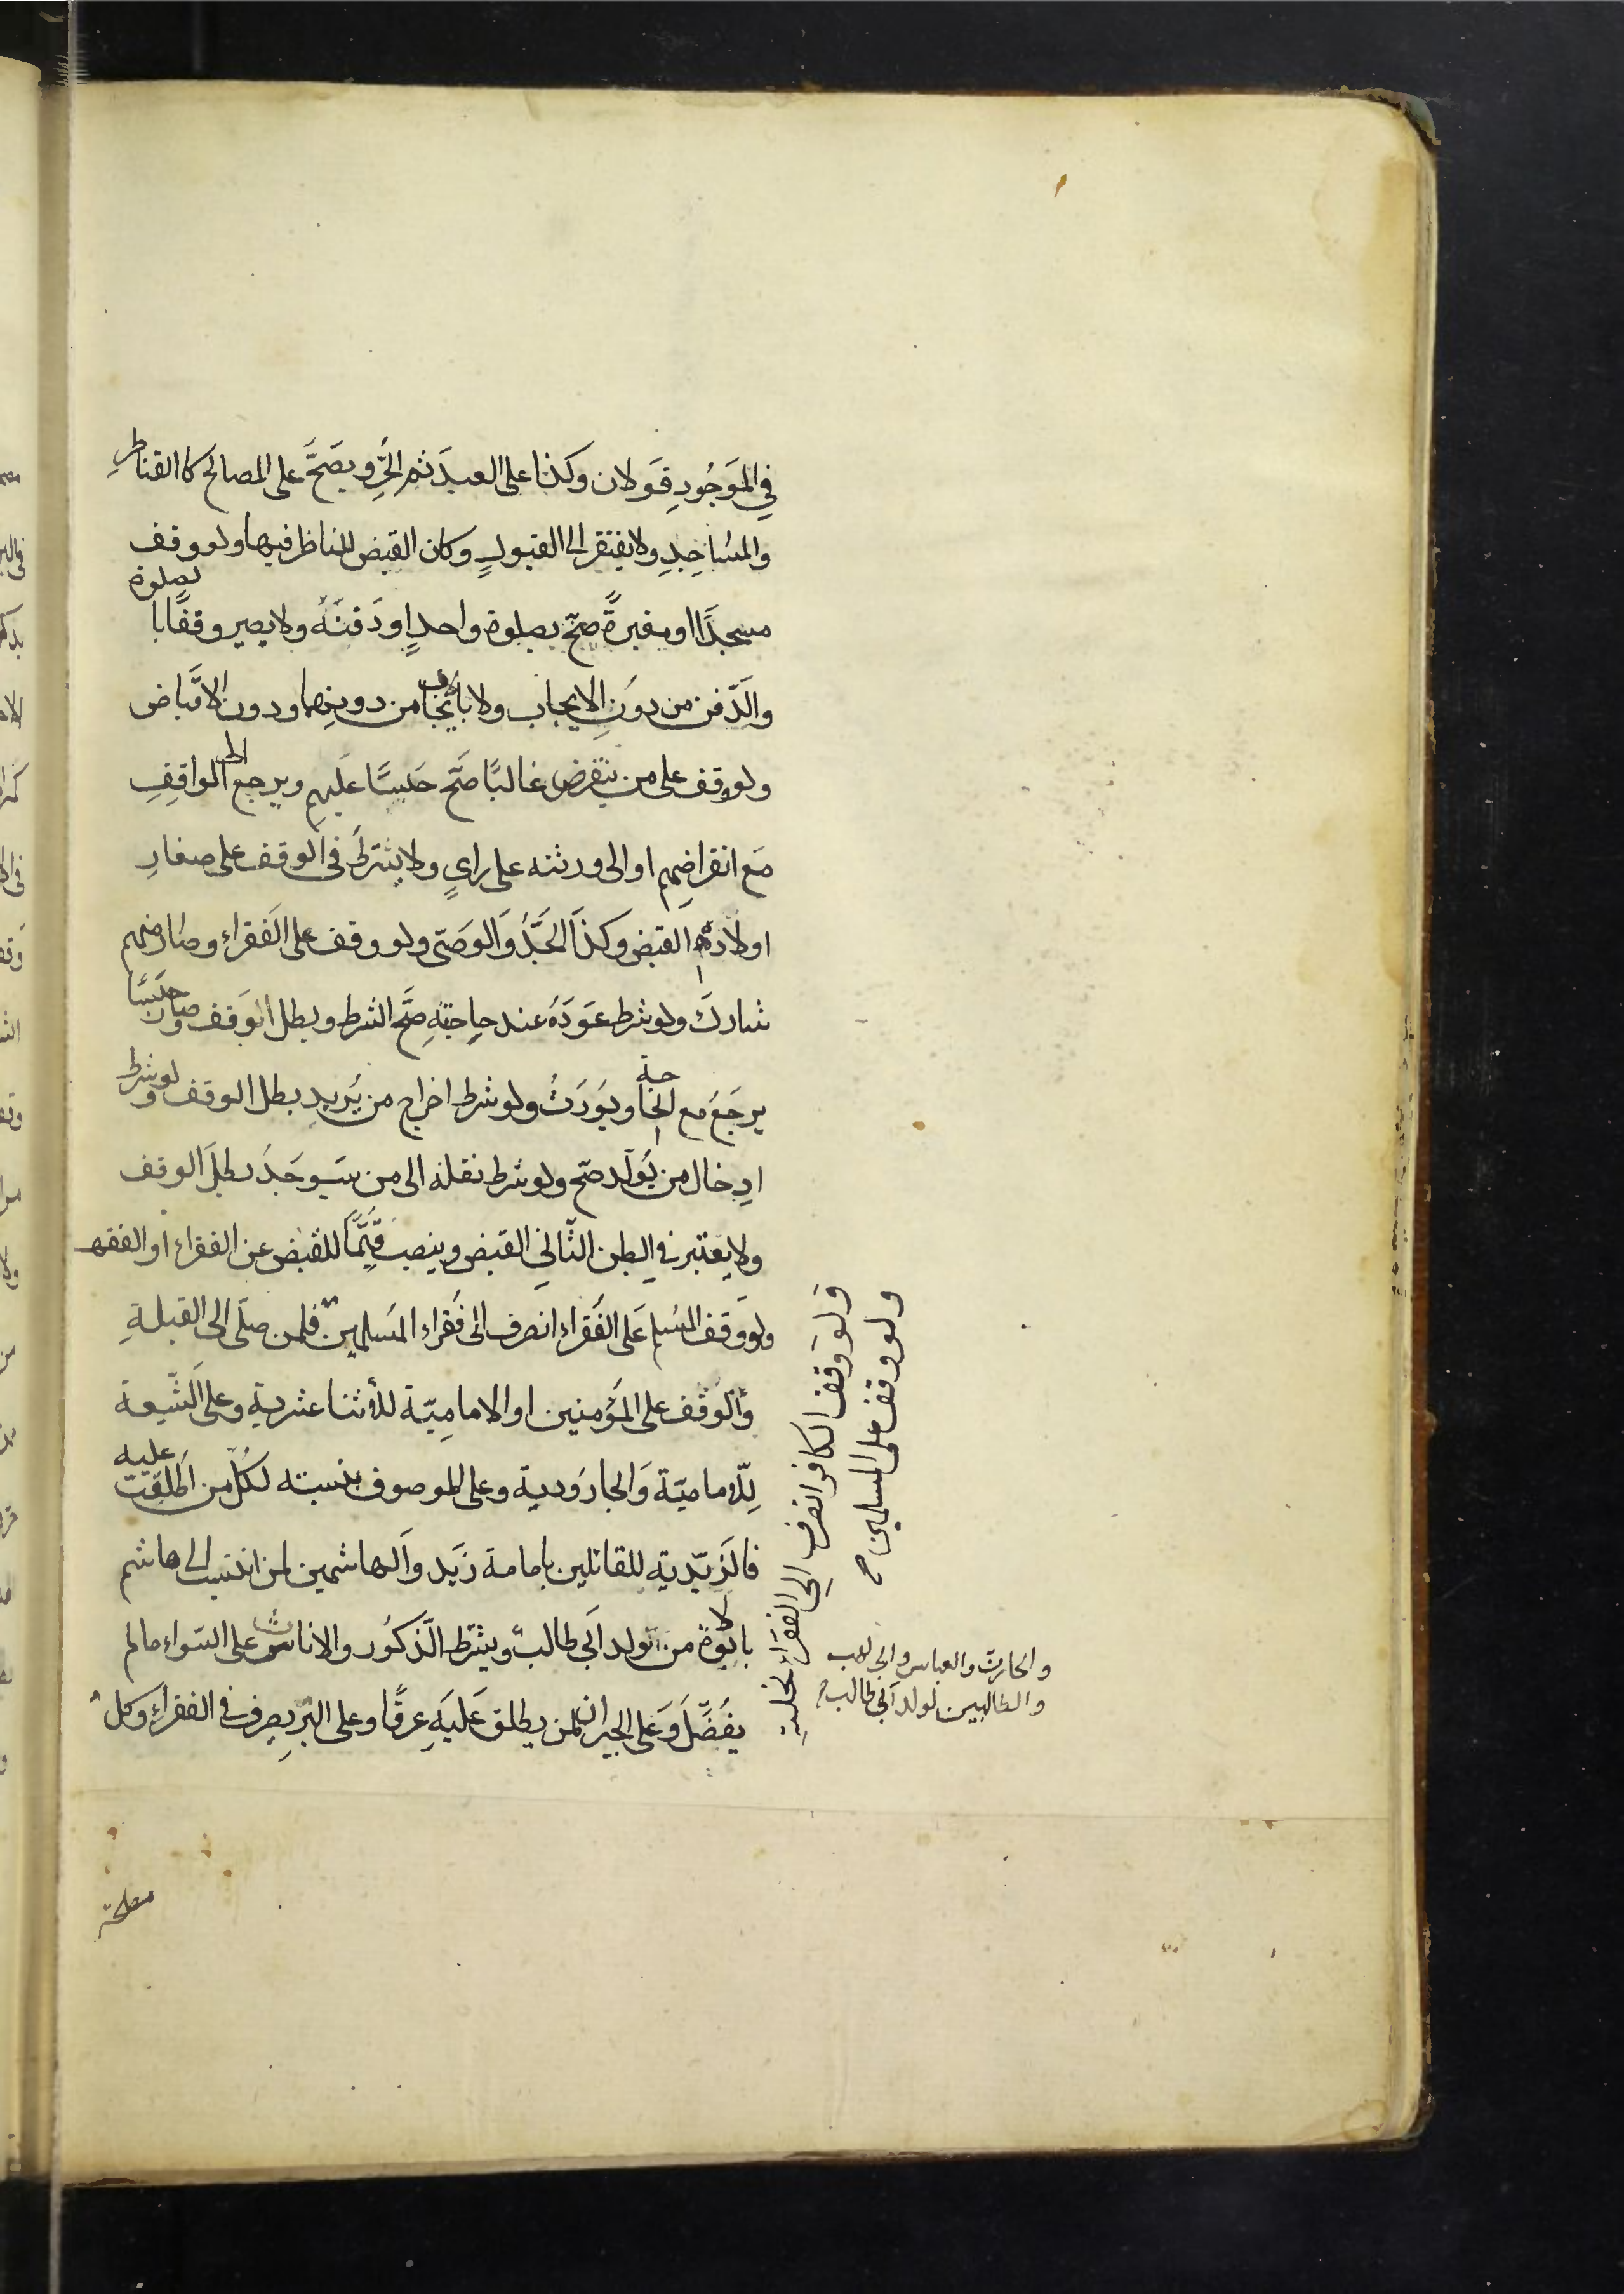 في المَوجُودِ قَولان وكذا على العبدَ ثم الحَرِّ ويصَحَّ على المصالح كالقناطرِ
والمسَاجِدِ ولا يفتقر الى القبولِ وكان القبض للناظر فيها ولو وقف
مسجدًا او مقبرةً صحّ بصلوة واحدٍ او دَفنَهُ ولا يصير وقفًا با لصلوة
والدّفن من دون الايجاب ولا بالايجاب من دونهما ودون الاقباض
ولو وقف على من ينقرض غالبًا صَحّ حَبسًا عَليهم ويرجع الى الواقِفِ
مَع انقراضِهم او الى ورثته على رايٍ ولا يشترط في الوقف على صغارِ
اولاده القبض وكذا الجَدُّ وَالوَصّى ولو وقف على الفقراء وصَار منهم
شاركَ ولو شرط عَودَهُ عند حاجتِهِ صَّح الشرط وبطل الوَقف وصار حَبسًا
يرجَعَ مع الحاجة ويوَرَثُ ولو شرط اخراج من يُريدِ بطل الوقف ولو شرط
ادخال من يُولَد صّح ولو شرط نقله الى من سَيوجَدُ بطلَ الوقف
ولا يعتبر في البطن الثّاني القبض وينصب قَيِّمًا للقبض عن الفقراء او الفقه
ولو وَقف المسُلم عَلى الفُقراء انصرف الى فُقراءِ المسُلمين فلمن صلّى الى القبلةِ
وَالوَقف على المؤُمنين او الامامِيّة للأثنا عشرية وعلى الشّيعة
لِلأماميّة وَالجارَودية وعلى الموصوف بنسبته لكُلّ من اَطلقت عليه
فالزَيّديّة للقائلين بامامة زَيَد وَالهاشمين لمن انتسب الى هاشم
بالابوّة من ولد اَبي طالب ويشترط الذّكور والاناث على السّواء ما لم
يفُضّل وَعَلى الجيران لمن يطلق عَليَهِ عرفًا وعلى البّرِ يصرف في الفقراء وكل
ولو وقف الكافر انصرف الى الفقراء نحلته
ولو وقف على المسلمين ح
والحارث والعباس وابى لهب
والطالبيين لولد ابي طالب ح
مصلحة